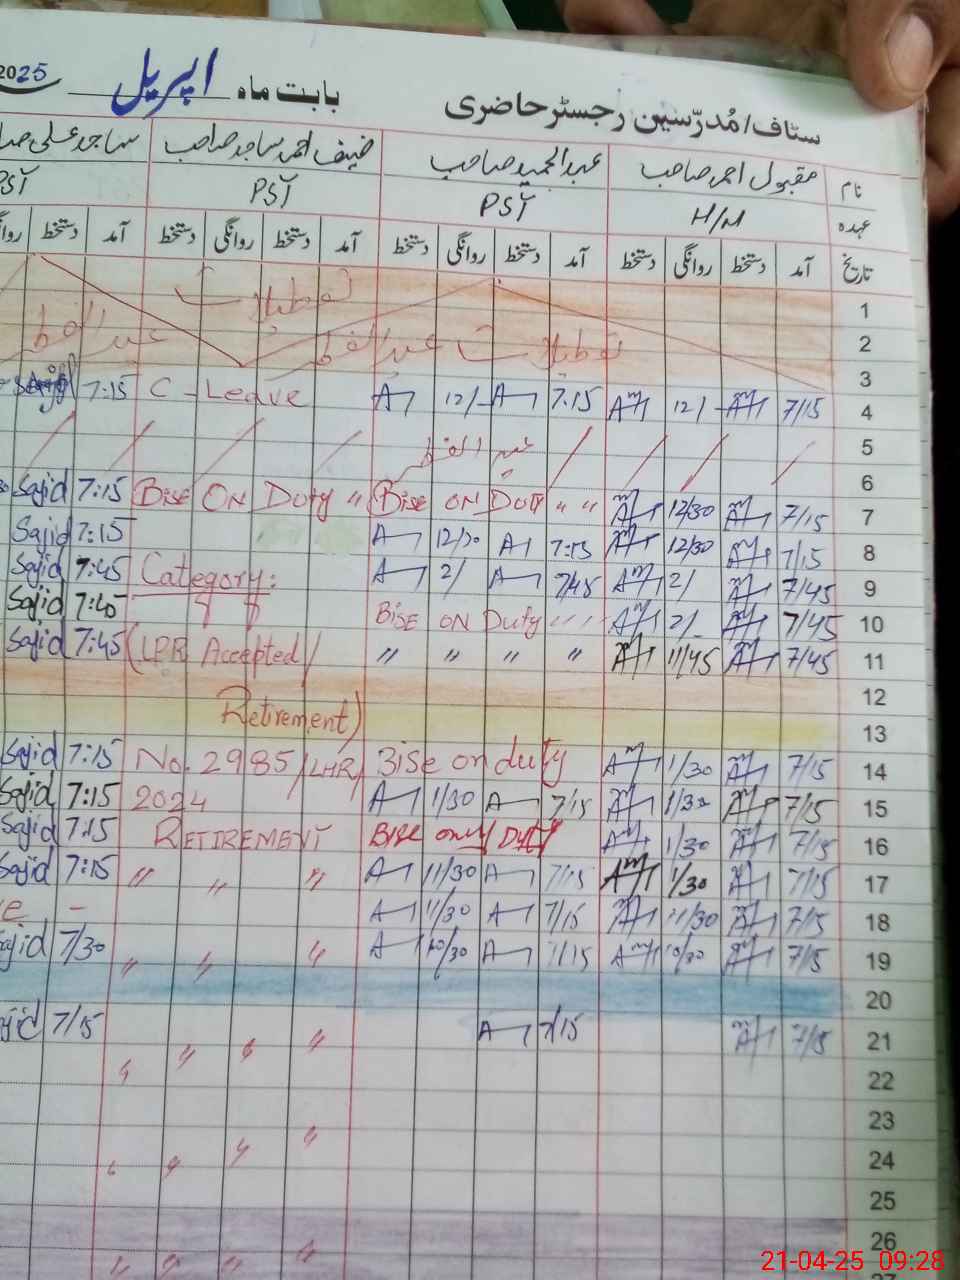 ستاف/مُدرّسین رجسٹر حاضری بابت ماہ اپریل 2025
نام مقبول احمد صاحب عبدالحمید صاحب حنیف احمد ساجد صاحب ساجد علی
عہدہ H/M PST PST PST
تاریخ آمد دستخط روانگی دستخط آمد دستخط روانگی دستخط آمد دستخط روانگی دستخط آمد دستخط
1 تعطیلات
2 تعطیلات عید الفطر عید الفطر
3
4 7/15 12/ 7:15 12/ C-Leave 7:15
5 عید الفطر
6
7 7/15 12/30 Bise ON Duty " " Bise ON Duty " 7:15 Sajid
8 7/15 12/30 7:15 7:15 Sajid
9 7/45 2/ 7/45 2/ Category: 7:45 Sajid
10 7/45 2/ Bise ON Duty " " Sajid
11 7/45 11/45 " " " " (LPR Accepted/ 7:45 Sajid
12
13 Retirement)
14 7/15 1/30 Bise on duty No. 2985/LHR/ 7:15 Sajid
15 7/15 1/30 7/15 1/30 2024 7:15 Sajid
16 7/15 1/30 Bise only Duty RETIREMENT 7:15 Sajid
17 7/15 1/30 7/15 11/30 " " " 7:15 Sajid
18 7/15 11/30 7/15 11/30
19 7/15 10/30 7/15 10/30 " " " 7/30 Sajid
20
21 7/15 7/15 " " " " 7/15
22
23
24 " " " "
25
26 " " " "
21-04-25 09:28